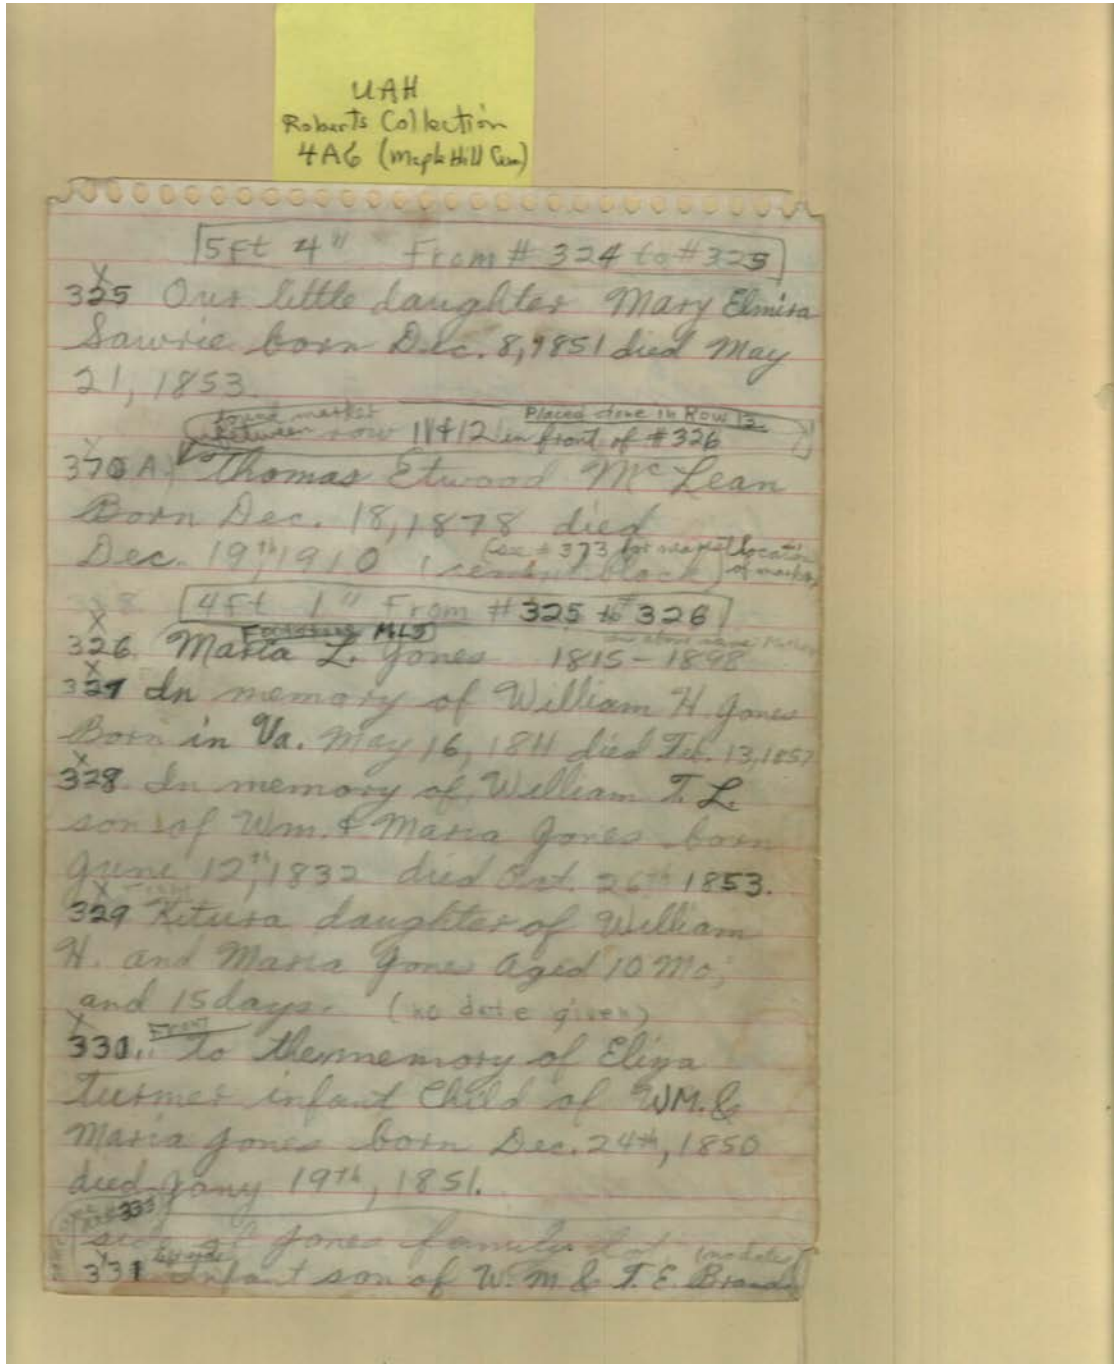 UAH
Roberts Collection
4A6 (Maple Hill Cem)
5ft 4" From # 324 to #325
X
325 Our little daughter Mary Elmira
Sawrie born Dec. 8, 1851 died May
21, 1853.
found marker Placed stone in Row 12
between row 11 & 12 in front of #326
X
370 A Thomas Etwood McLean
Born Dec. 18, 1878 died
Dec. 19th, 1910 (see # 373 for location
block) of marker)
4ft 1" From # 325 to # 326
X Footstone MLJ
326. Maria L. Jones 1815-1898
X
327 In memory of William H. Jones
Born in Va. May 16, 1811 died Feb. 13, 1857
X
328. In memory of William T. L.
son of Wm. & Maria Jones born
June 12th, 1832 died Oct. 26th 1853.
X
329 Kitura daughter of William
H. and Maria Jone Aged 10 Mo;
and 15 days. (no date given)
X Front
330. To the memory of Eliza
Turner infant Child of WM. &
Maria Jones born Dec. 24th, 1850
died Jany 19th, 1851.
333
side of Jones family lot. (no dates)
X
331 Infant son of W. M & T. E. Brandon